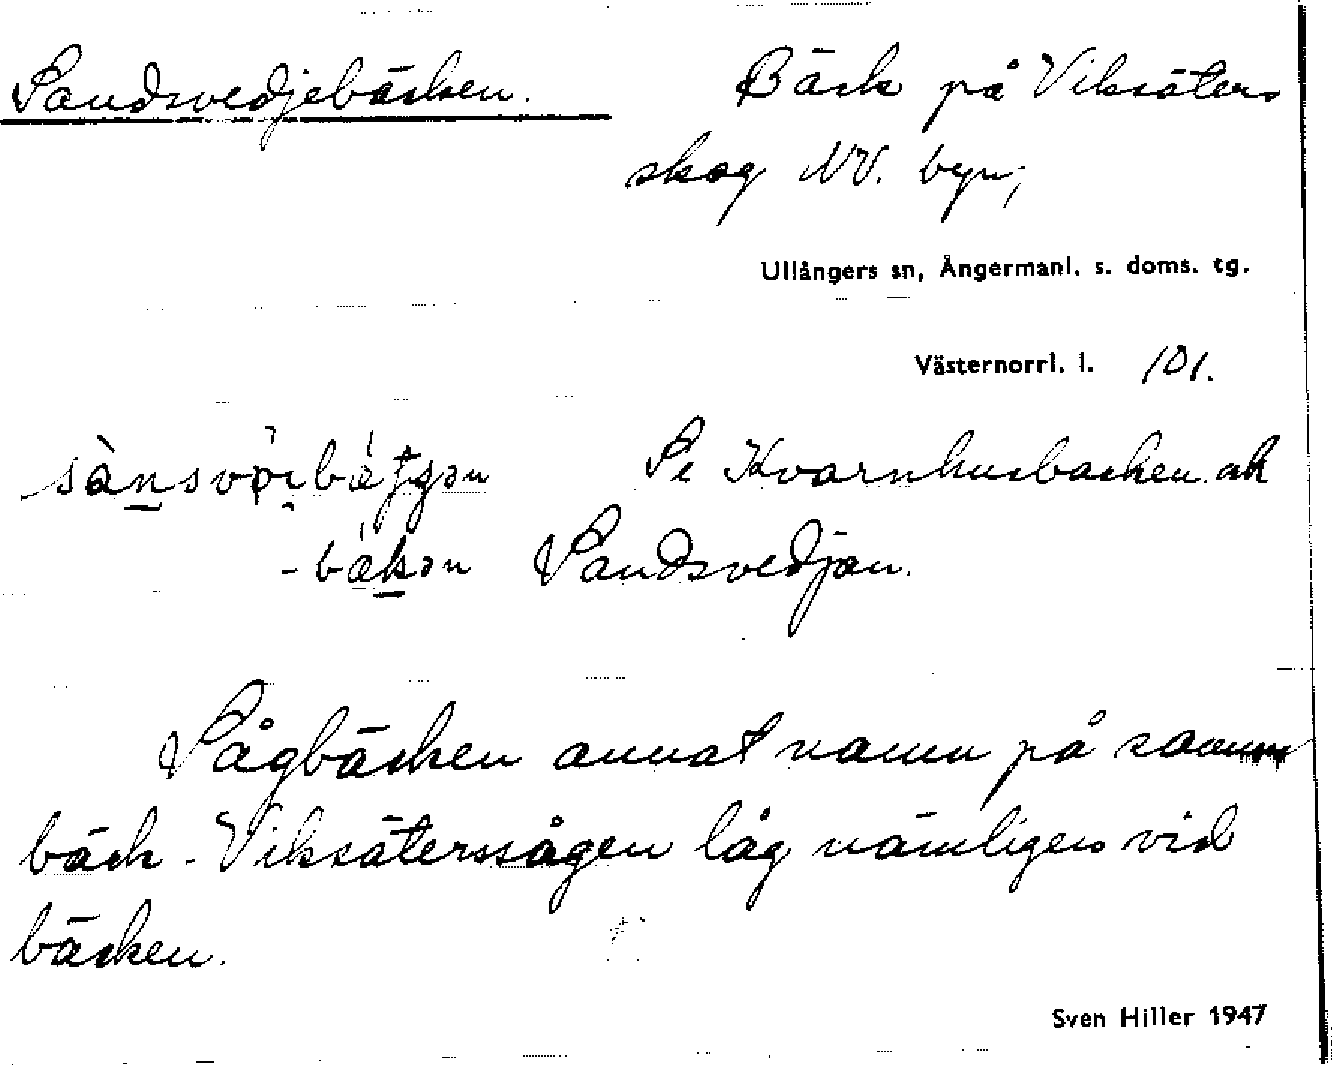 Sandsvedjebäcken. Bäck på Viksäters
skog NV. byn;
Ullångers sn, Ångermanl. s. doms. tg.
Västernorrl. l. 101.
Se Kvarnhusbacken. ok
Sandsvedjan.
Sågbäcken annat namn på samm
bäck - Viksäterssågen låg nämligen vid
bäcken.
Sven Hiller 1947